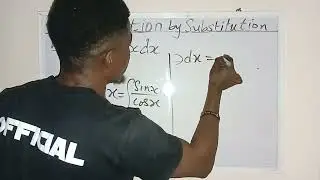 tion by Substitution
x dx
⊃dx =
x = ∫ Sinx / cosx
OFFICIAL